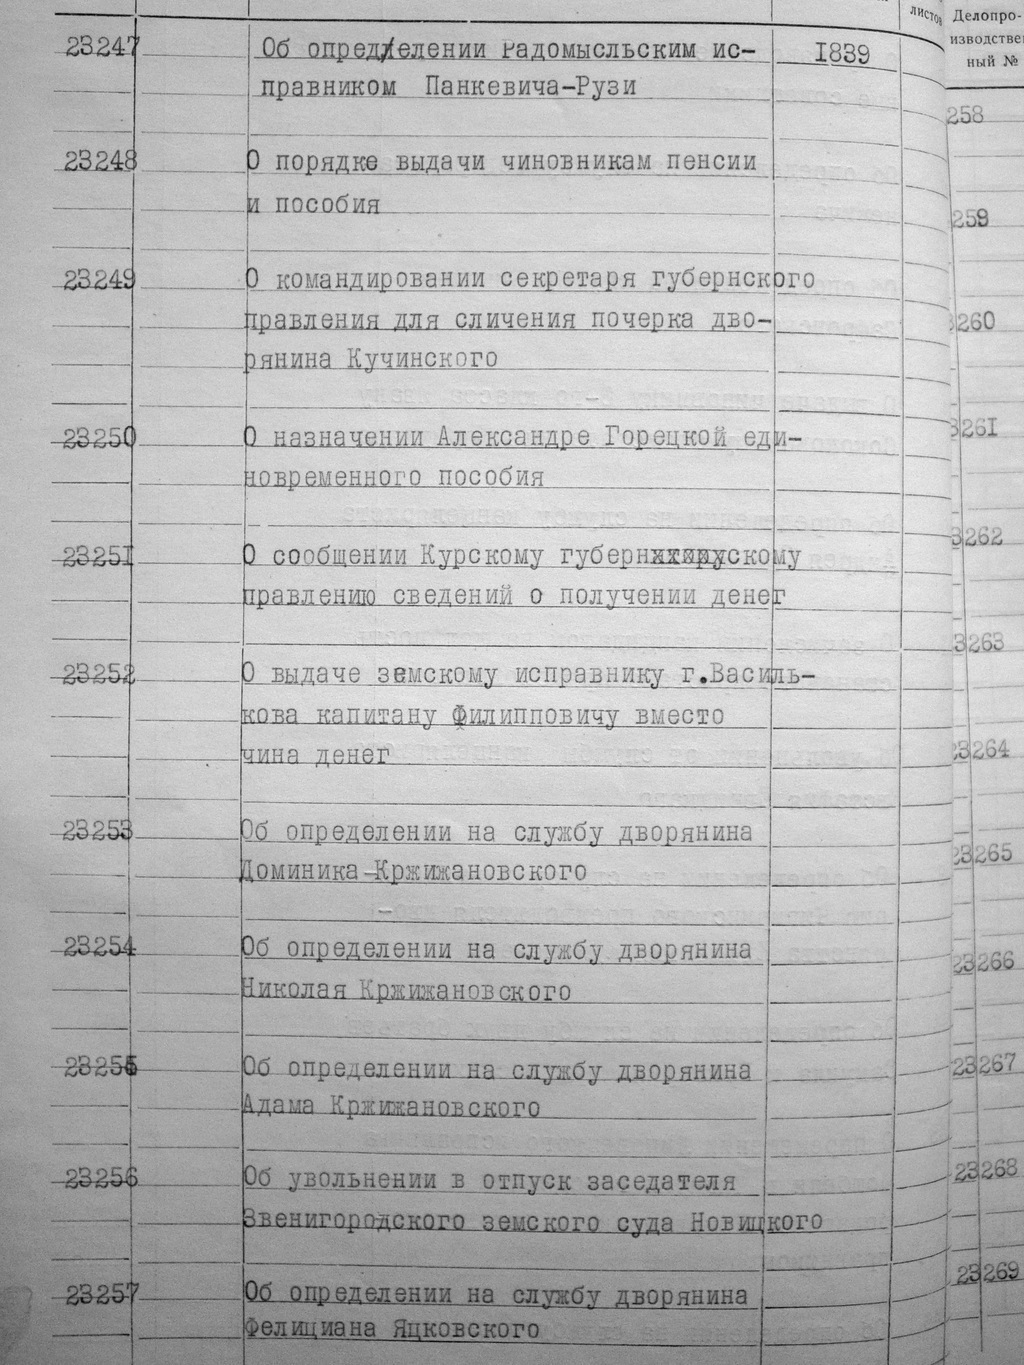 листов
Делопро-
изводствен
ный №
23247 Об опред/елении Радомысльским ис- 1839
правником Панкевича-Рузи
23248 О порядке выдачи чиновникам пенсии
и пособия
23249 О командировании секретаря губернского
правления для сличения почерка дво-
рянина Кучинского
23250 О назначении Александре Горецкой еди-
новременного пособия
23251 О сообщении Курскому губернскому
правлению сведений о получении денег
23252 О выдаче земскому исправнику г.Василь-
кова капитану Филипповичу вместо
чина денег
23253 Об определении на службу дворянина
Доминика Кржижановского
23254 Об определении на службу дворянина
Николая Кржижановского
23255 Об определении на службу дворянина
Адама Кржижановского
23256 Об увольнении в отпуск заседателя
Звенигородского земского суда Новицкого
23257 Об определении на службу дворянина
Фелициана Яцковского
258
259
3260
3261
3262
3263
23264
23265
23266
23267
23268
23269